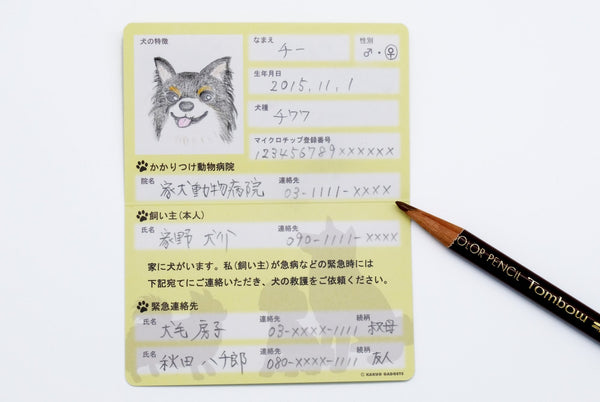 犬の特徴
なまえ
チー
性別
♂・♀
生年月日
2015.11.1
犬種
チワワ
マイクロチップ登録番号
123456789××××××
かかりつけ動物病院
院名 家犬動物病院 連絡先 03-1111-××××
飼い主(本人)
氏名 家野 犬介 連絡先 090-1111-××××
家に犬がいます。私(飼い主)が急病などの緊急時には
下記宛てにご連絡いただき、犬の救護をご依頼ください。
緊急連絡先
氏名 犬毛 房子 連絡先 03-××××-1111 続柄 叔母
氏名 秋田 八千郎 連絡先 080-××××-1111 続柄 友人
© KAKUO GADGETS
COLOR PENCIL Tombow